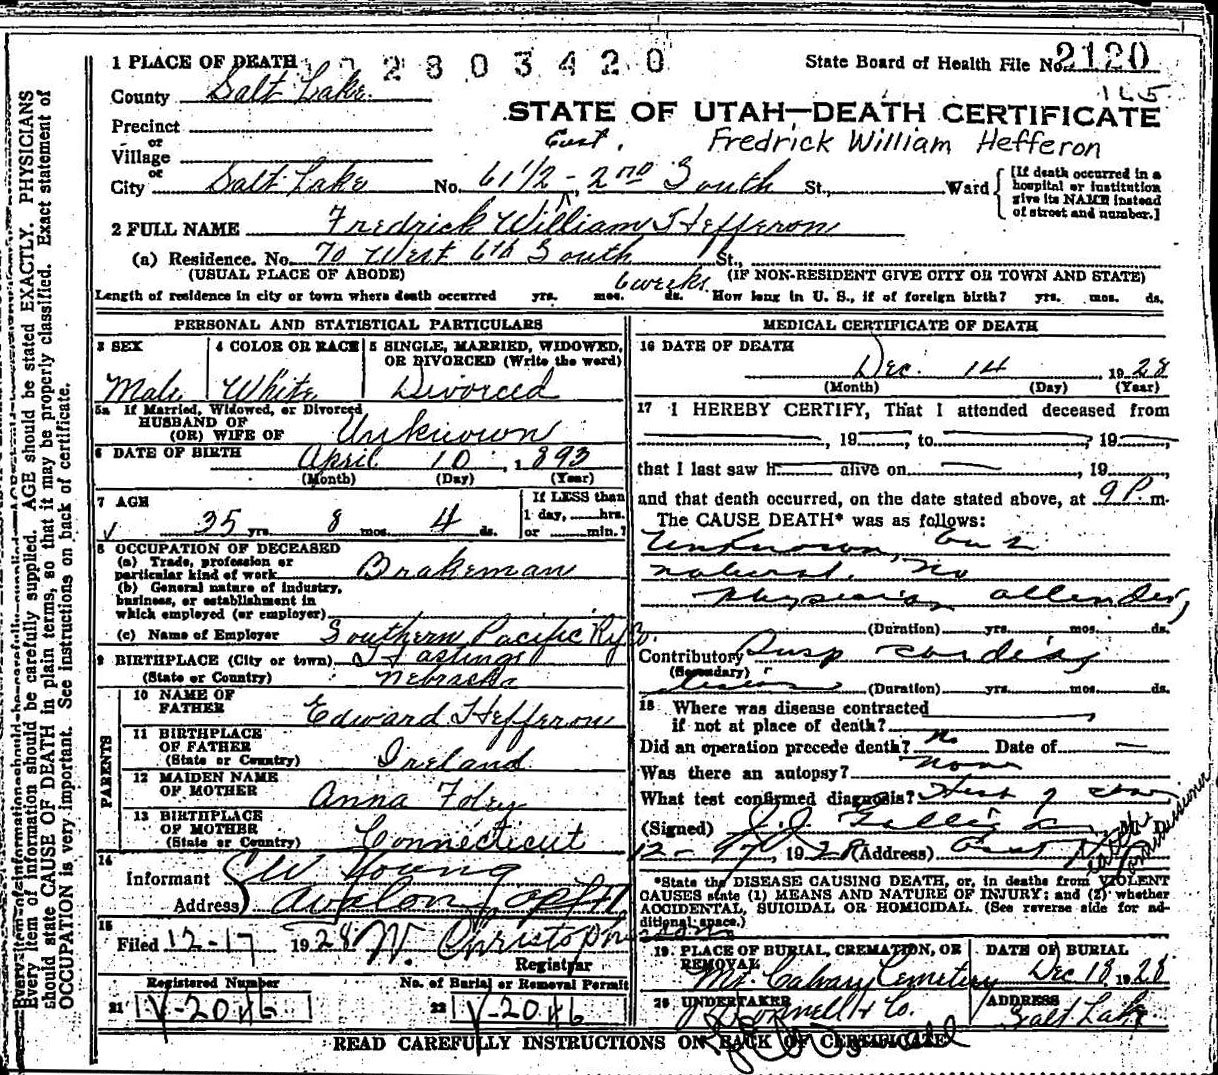 1 PLACE OF DEATH 2803420 State Board of Health File No. 2120
County Salt Lake 165
STATE OF UTAH—DEATH CERTIFICATE
Precinct
or
Village
East. Fredrick William Hefferon
or
City Salt Lake No. 61 1/2 - 2nd South St., Ward
[If death occurred in a hospital or institution give its NAME instead of street and number.]
2 FULL NAME Fredrick William Hefferon
(a) Residence. No. 70 West 6th South St.,
(USUAL PLACE OF ABODE) (IF NON-RESIDENT GIVE CITY OR TOWN AND STATE)
6 weeks
Length of residence in city or town where death occurred yrs. mos. ds. How long in U. S., if of foreign birth? yrs. mos. ds.
PERSONAL AND STATISTICAL PARTICULARS
3 SEX 4 COLOR OR RACE 5 SINGLE, MARRIED, WIDOWED, OR DIVORCED (Write the word)
Male White Divorced
5a If Married, Widowed, or Divorced
HUSBAND OF
(OR) WIFE OF Unknown
6 DATE OF BIRTH April 10, 1893
(Month) (Day) (Year)
7 AGE If LESS than
1 day, hrs.
35 yrs. 8 mos. 4 ds. or min.?
8 OCCUPATION OF DECEASED
(a) Trade, profession or
particular kind of work Brakeman
(b) General nature of industry,
business, or establishment in
which employed (or employer)
(c) Name of Employer Southern Pacific Ry Co.
9 BIRTHPLACE (City or town) Hastings
(State or Country) Nebraska
PARENTS
10 NAME OF
FATHER Edward Hefferon
11 BIRTHPLACE
OF FATHER
(State or Country) Ireland
12 MAIDEN NAME
OF MOTHER Anna Foley
13 BIRTHPLACE
OF MOTHER
(State or Country) Connecticut
14
Informant W Young
Address Avalon
15
Filed 12-17 1928 W. Christoph
Registrar
Registered Number No. of Burial or Removal Permit
21 V-2046 22 V-2046
MEDICAL CERTIFICATE OF DEATH
16 DATE OF DEATH
Dec. 14, 1928
(Month) (Day) (Year)
17 I HEREBY CERTIFY, That I attended deceased from
, 19 , to , 19 ,
that I last saw h alive on , 19 ,
and that death occurred, on the date stated above, at 9 P. m.
The CAUSE DEATH* was as follows:
Unknown, but
natural. No
physician attended,
(Duration) yrs. mos. ds.
Contributory Susp cardiac
(Secondary)
(Duration) yrs. mos. ds.
18 Where was disease contracted
if not at place of death?
Did an operation precede death? no Date of
Was there an autopsy? none
What test confirmed diagnosis? Hist of
(Signed)
, 1928 (Address)
Health Commissioner
*State the DISEASE CAUSING DEATH, or, in deaths from VIOLENT
CAUSES state (1) MEANS AND NATURE OF INJURY; and (2) whether
ACCIDENTAL, SUICIDAL OR HOMICIDAL. (See reverse side for ad-
ditional space.)
19 PLACE OF BURIAL, CREMATION, OR REMOVAL DATE OF BURIAL
Mt. Calvary Cemetery Dec 18 1928
20 UNDERTAKER ADDRESS
O'Donnell & Co. Salt Lake
READ CAREFULLY INSTRUCTIONS ON BACK OF CERTIFICATE
Every item of information should be carefully supplied. AGE should be stated EXACTLY. PHYSICIANS
should state CAUSE OF DEATH in plain terms, so that it may be properly classified. Exact statement of
OCCUPATION is very important. See instructions on back of certificate.